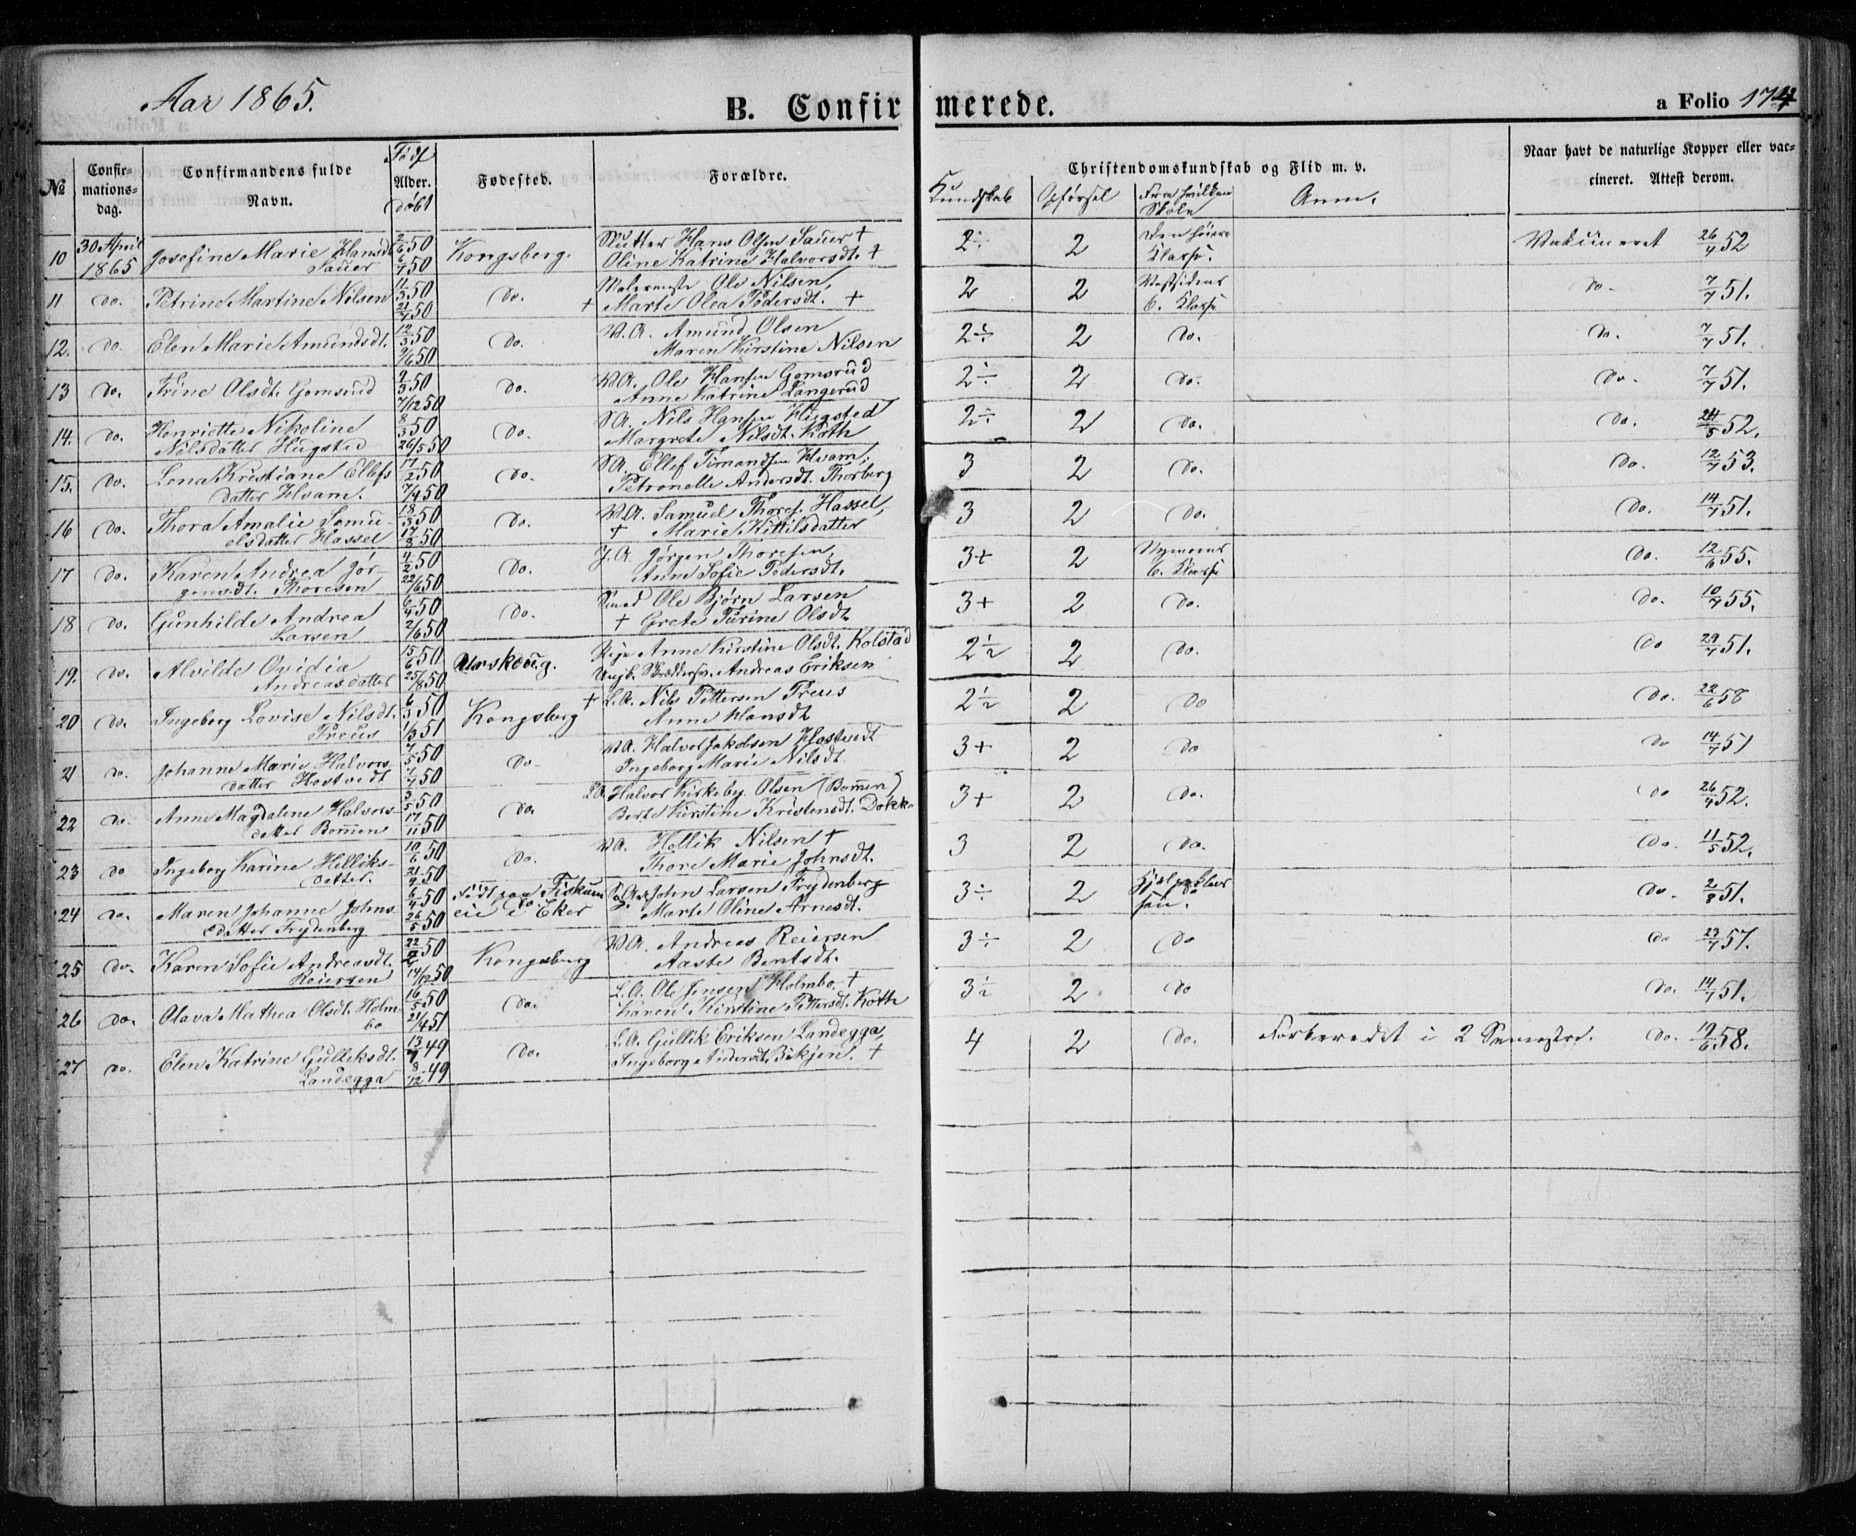 Aar 1865.
B. Confirmerede.
a Folio 174
№ Confirmationsdag. Confirmandens fulde Navn. Født Alder. Døbt Fødested. Forældre. Christendomskundskab og Flid m. v. Kundskab Opførsel Fra hvilken Skole Anm. Naar havt de naturlige Kopper eller vaccineret. Attest derom.
10 30 April 1865 Josefine Marie Hansdt. Sauer 2/6 50 6/7 50 Kongsberg. Slutter Hans Olsen Sauer † Oline Katrine Halvorsdt. † 2÷ 2 Den høiere Klasse. Vakcineret 26/4 52
11 do. Petrine Martine Nilsen 11/3 50 21/7 50 do. Malermester Ole Nilsen, † Marte Olea Pedersdt. † 2 2 Vestsidens 6. Klasse do 7/7 51.
12. do. Elen Marie Amundsdt. 12/3 50 9/6 50 do. V.A. Amund Olsen Maren Kirstine Nilsen 2÷ 2 do. do. 7/7 51.
13 do. Trine Olsdt. Gomsrud 2/3 50 7/12 50 do. V.A. Ole Hansen Gomsrud Anne Katrine Langerud 2÷ 2 do. do. 7/7 51.
14. do. Henriette Nikoline Nilsdatter Hugsted 8/3 50 26/5 50 do. S.A. Nils Hansen Hugsted Margrete Nilsdt. Koth 2÷ 2 do. do. 24/5 52.
15. do. Lena Kristiane Ellefsdatter Hvam. 17/2 50 7/4 50 do. S.A. Ellef Simandsen Hvam, Petronelle Andersdt. Thorberg 3 2 do. do. 12/7 53.
16 do. Thora Amalie Samuelsdatter Hassel 18/3 50 17/8 50 do. V.A. Samuel Thors. Hassel, † Marie Kittilsdatter 3 2 do. do. 14/7 51.
17 do. Karen Andrea Jørgensdt. Thoresen 4/2 50 22/6 50 do. J.A. Jørgen Thoresen, Anne Sofie Pedersdt. 3+ 2 Nymoens 6. Klasse do. 12/6 55.
18 do. Gunhilde Andrea Larsen 6/4 50 2/6 50 do. Smed Ole Bjørn Larsen † Grete Turine Olsdt. 3+ 2 do. do. 10/7 55.
19. do. Alvilde Ovidia Andreasdatter 15/6 50 25/8 50 Urskoug. Pige Anne Kirstine Olsdt. Kolstad Ungk. Andreas Eriksen 2½ 2 do. do 29/7 51.
20 do. Ingeborg Lovise Nilsdt. Preus 6/3 50 1/3 51 Kongsberg † L.A. Nils Pettersen Preus Anne Hansdt. 2½ 2 do do. 22/6 58
21 do. Johanne Marie Halvorsdatter Hostvedt 7/5 50 7/7 50 do V.A. Halvor Jakobsen Hostvedt Ingeborg Marie Nilsdt. 3+ 2 do do 14/7 51
22 do. Anne Magdalene Halvorsdatter Bommen 3/5 50 17/11 50 do. L.A. Halvor Kirkeby Olsen (Bommen) Berte Kirstine Kristensdt. Dokka 3+ 2 do. do 26/4 52.
23 do Ingeborg Karine Helliksdatter. 10/6 50 21/7 50 do. V.A. Hellik Nilsen † Thore Marie Johnsdt. 3 2 do. do. 11/5 52.
24 do. Maren Johanne Johnsdatter Frydenberg 6/4 50 26/5 50 Født paa Fiskum eie i Eker G.A. John Larsen Frydenberg Marte Oline Arnesdt. 3÷ 2 do. 2/8 51.
25 do. Karen Sofie Andreasdt. Reiersen 22/ 50 14/12 50 Kongsberg V.A. Andreas Reiersen Aaste Berntsdt. 3÷ 2 do do 23/7 57.
26 do. Olava Mathea Olsdt. Holmbo 16/5 50 21/4 51 do. L.A. Ole Jensen Holmbo, † Karen Kirstine Pettersdt. Koth 3½ 2 do do. 14/7 51.
27 do. Elen Katrine Gulliksdt. Landegga 13/7 49 8/12 49 do. L.A. Gullik Eriksen Landegga, Ingeborg Andersdt. Bikjen. † 4 2 do. Forberedet i 2 Semestre. do. 19/6 58.